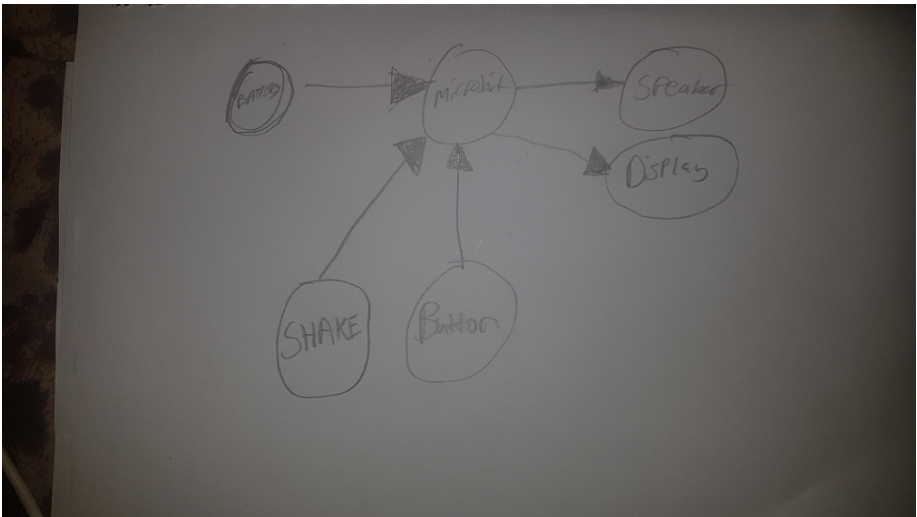 BATTERY
Microbit
Speaker
Display
SHAKE
Button